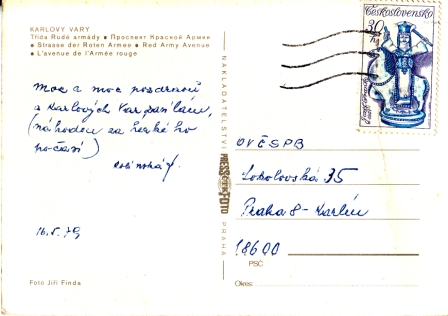 KARLOVY VARY
Třída Rudé armády ● Проспект Красной Армии
● Strasse der Roten Armee ● Red Army Avenue
● L'avenue de l'Armée rouge
Moc a moc pozdravů
z Karlových Var
(náhodou za hezkého
počasí)
16. 5. 79
Foto Jiří Finda
NAKLADATELSTVÍ PRESSFOTO PRAHA
Československo
30
h
OVČSPB
Sokolovská 35
Praha 8 - Karlín
186 00
PSČ
Okres: